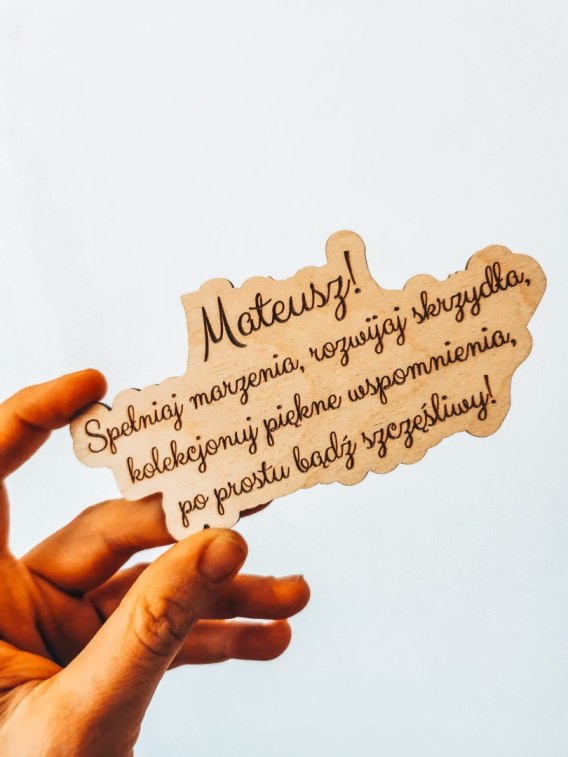 Mateusz!
Spełniaj marzenia, rozwijaj skrzydła,
kolekcjonuj piękne wspomnienia,
po prostu bądź szczęśliwy!